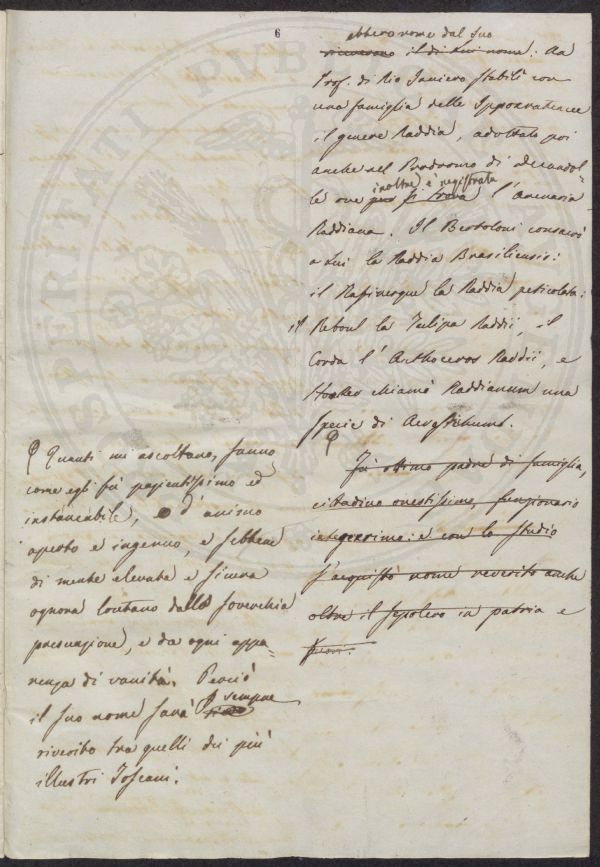 6
ebbero nome dal suo
riceverono il di lui nome: Un
Prof. di Rio Janiero stabilì con
una famiglia delle Ippocrateacee
il genere Raddia, adottato poi
anche nel Prodromo di Decandol-
inoltre è registrata
le ove pure si trova l'Arenaria
Raddiana. Il Bertoloni consacrò
a lui la Raddia Brasiliensis:
il Rafinesque la Raddia
il Reboul la Tulipa Raddii, il
Corda l'Anthoceros Raddii, e
Hooker chiamò Raddianum una
specie di Acrostichum.
Fù ottimo padre di famiglia,
cittadino onestissimo, funzionario
integerrimo: e con lo studio
s'acquistò nome reverito anche
oltre il sepolcro in patria e
fuori.
Quanti mi ascoltano, sanno
come egli fù pazientissimo ed
instancabile, d'animo
aperto e ingenuo, e sebbene
di mente elevata e
ognora lontano dalla soverchia
presunzione, e da ogni appa-
renza di vanità. Perciò
sempre
il suo nome sarà
riverito tra quelli dei più
illustri Toscani.